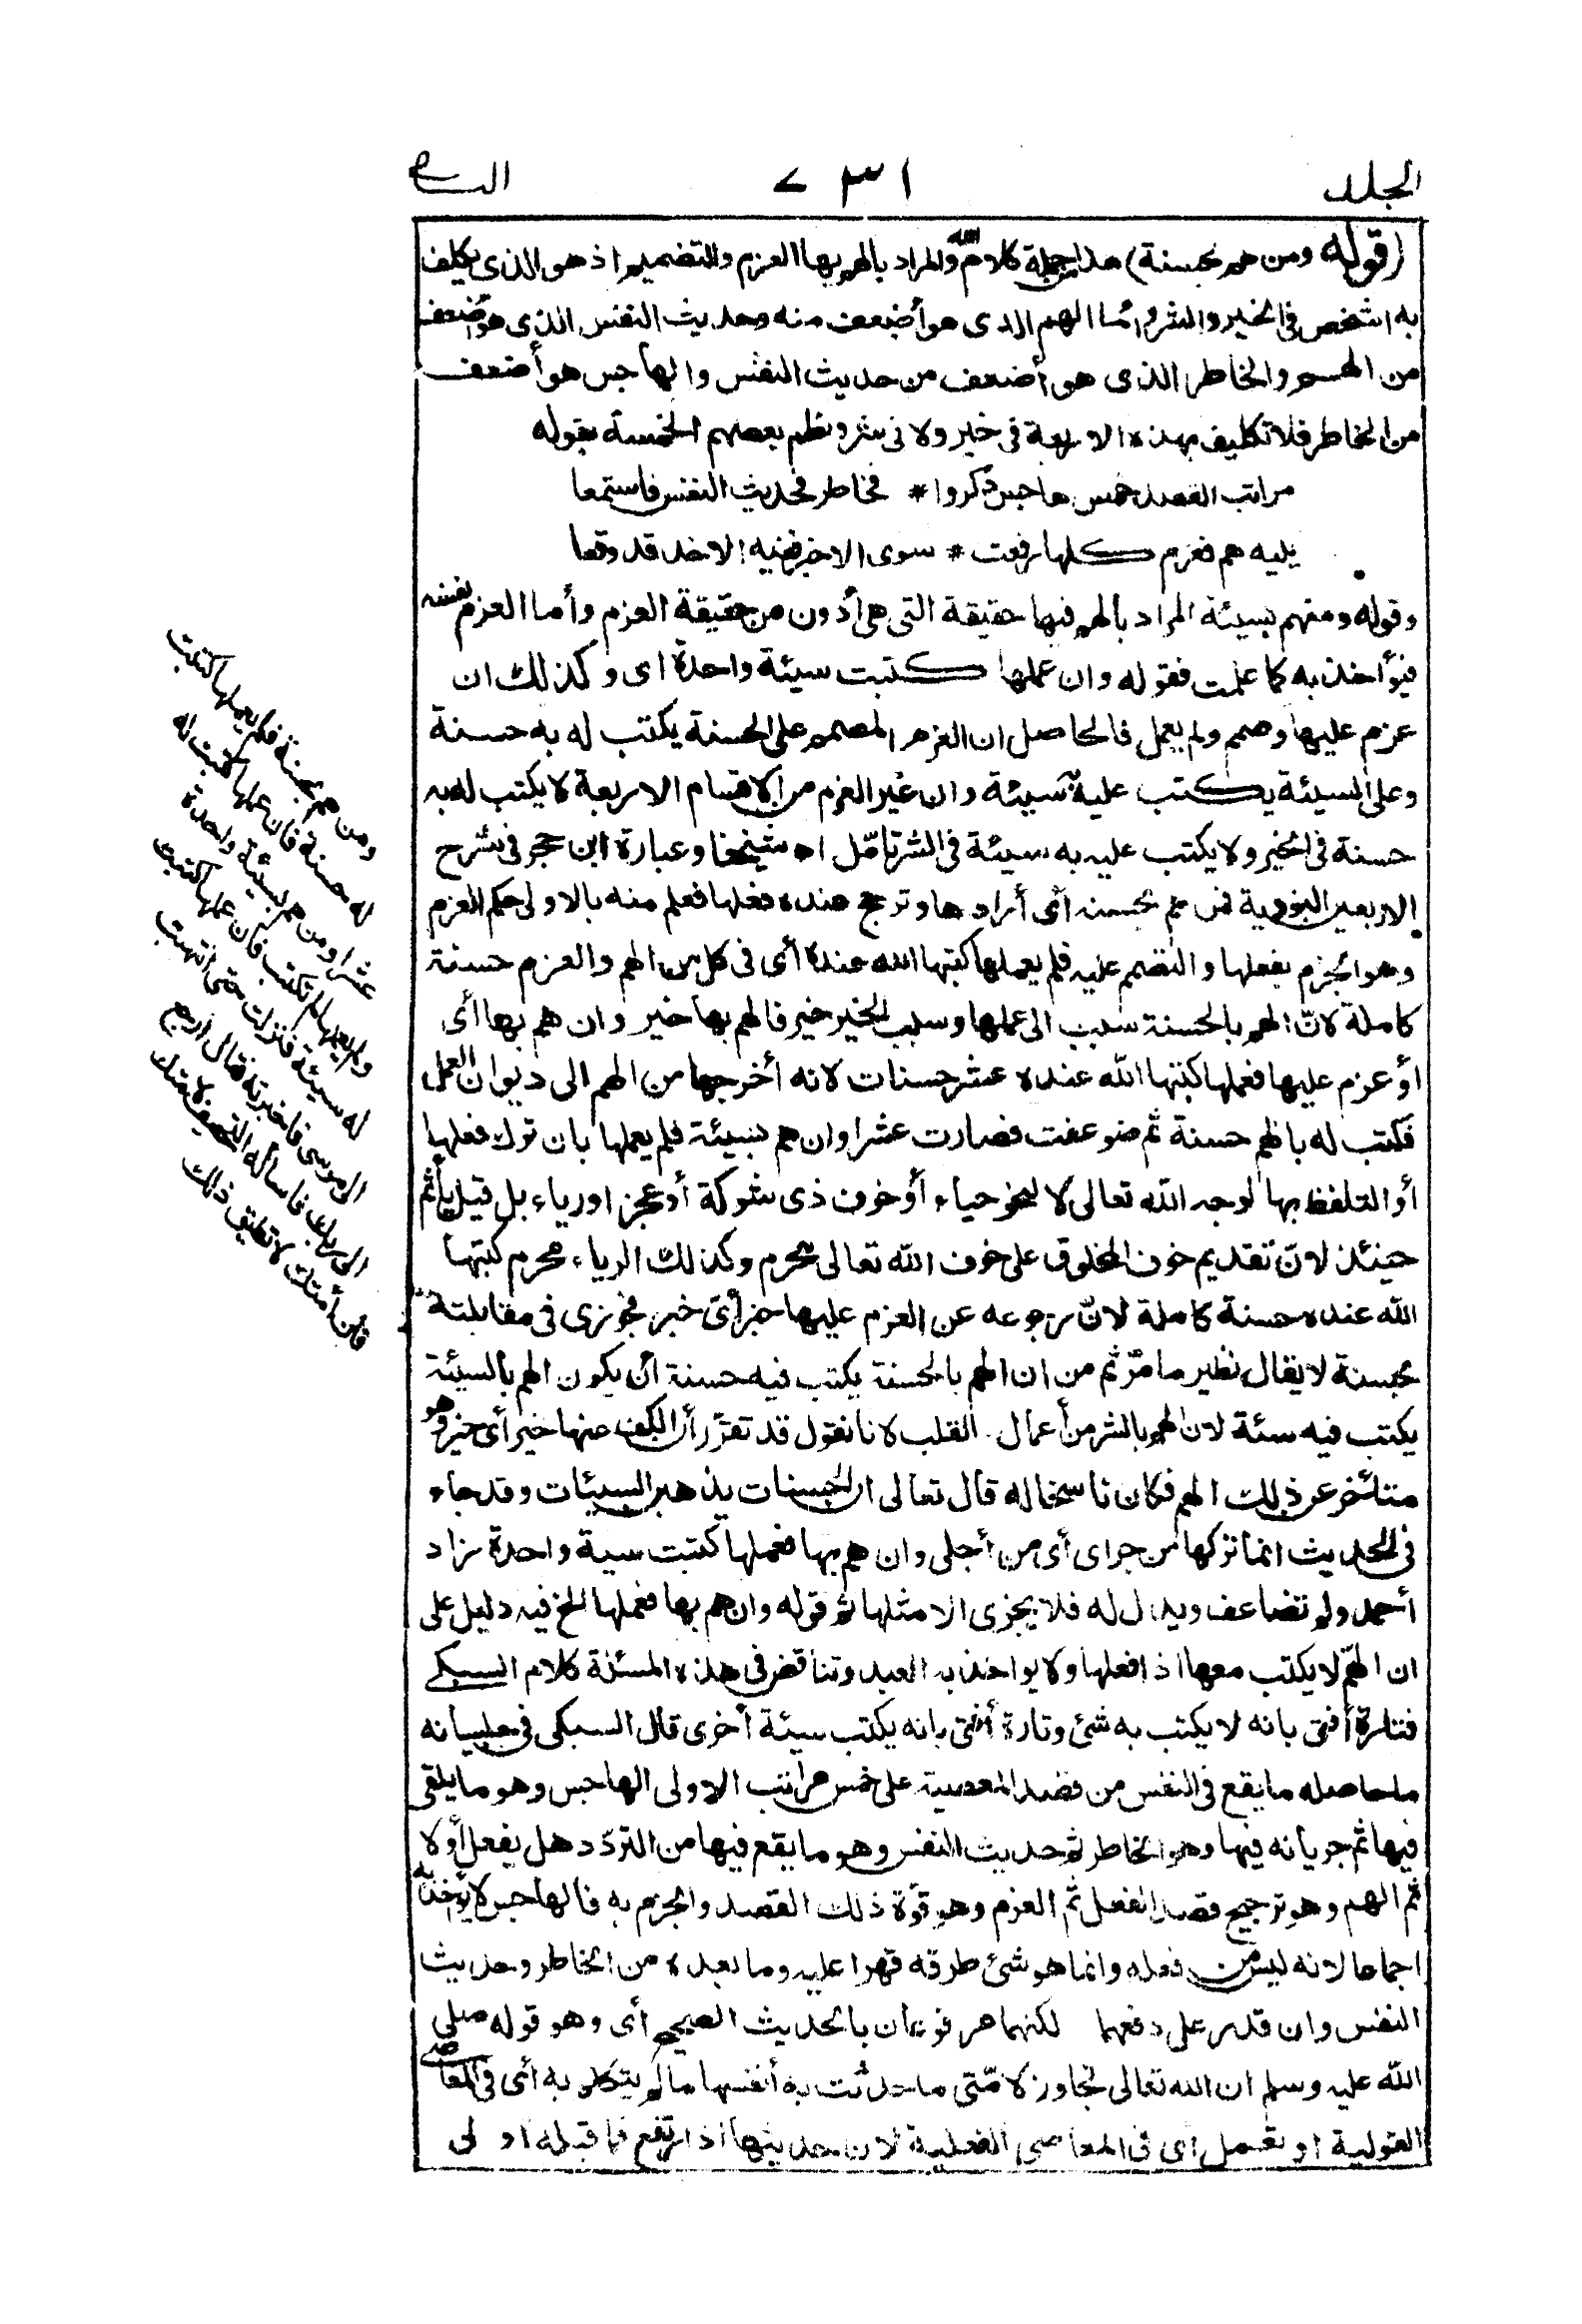 الجلد ٧٣١ التاسع
(قوله ومن هم بحسنة) هذا من جملة كلام الله والمراد بالهم بها العزم والتصميم اذ هو الذى يكلف
به الشخص فى الخير والشر وأما الهم الذى هو أضعف منه وحديث النفس الذى هو أضعف
من الهم والخاطر الذى هو أضعف من حديث النفس والهاجس هو أضعف
من الخاطر فلا تكليف بهذه الاربعة فى خير ولا فى شر ونظم بعضهم الخمسة بقوله
مراتب القصد خمس هاجس ذكروا * فخاطر فحديث النفس فاستمعا
يليه هم فعزم كلها رفعت * سوى الاخير ففيه الاخذ قد وقعا
وقوله ومن هم بسيئة المراد بالهم فيها حقيقة التى هى أدون من حقيقة العزم وأما العزم نفسه
فيؤاخذ به كما علمت فقوله وان عملها كتبت سيئة واحدة اى وكذلك ان
عزم عليها وصمم ولم يعمل فالحاصل ان العزم المصمم على الحسنة يكتب له به حسنة
وعلى السيئة يكتب عليه به سيئة وان غير العزم من الاقسام الاربعة لا يكتب له به
حسنة فى الخير ولا يكتب عليه به سيئة فى الشر تأمّل اه شيخنا وعبارة ابن حجر فى شرح
الاربعين النووية فمن هم بحسنة أى أرادها وترجح عنده فعلها فعلم منه بالاولى حكم العزم
وهو الجزم بفعلها والتصمم عليه فلم يعملها كتبها الله عنده أى فى كل من الهم والعزم حسنة
كاملة لانّ الهم بالحسنة سبب الى عملها وسبب الخير خير فالهم بها خير وان هم بها أى
أو عزم عليها فعملها كتبها الله عنده عشر حسنات لانه أخرجها من الهم الى ديوان العمل
فكتب له بالهم حسنة ثم ضوعفت فصارت عشرا وان هم بسيئة فلم يعملها بان ترك فعلها
أو التلفظ بها لوجه الله تعالى لا لنحو حياء أو خوف ذى شوكة أو عجز او رياء بل قيل يأثم
حينئذ لانّ تقديم خوف المخلوق على خوف الله تعالى محرم وكذلك الرياء محرم كتبها
الله عنده حسنة كاملة لانّ رجوعه عن العزم عليها خير أىّ خير فجوزى فى مقابلته
بحسنة لا يقال نظير ما مرّ ثم من ان الهم بالحسنة يكتب فيه حسنة أن يكون الهم بالسيئة
يكتب فيه سئة لان الهم بالشر من أعمال القلب لانا نقول قد تقرّر أن الكف عنها خير أى خير وهو
متأخر عن ذلك الهم فكان ناسخا له قال تعالى ان الحسنات يذهبن السيئات وقد جاء
فى الحديث انما تركها من جراى أى من أجلى وان هم بها فعملها كتبت سية واحدة زاد
أحمد ولم تضاعف ويدل له فلا يجزى الا مثلها ثم قوله وان هم بها فعملها الخ فيه دليل على
ان الهمّ لا يكتب معها اذ افعلها ولا يواخذ به العبد وتناقض فى هذه المسئلة كلام السبكى
فتارة أفتى بانه لا يكتب به شئ وتارة أفتى بانه يكتب سيئة أخرى قال السبكى فى حلبياته
ما حاصله ما يقع فى النفس من قصد المعصية على خمس مراتب الاولى الهاجس وهو ما يلقى
فيها ثم جريانه فيها وهو الخاطر ثم حديث النفس وهو ما يقع فيها من التردّد هل يفعل أو لا
ثم الهم وهو ترجيح قصد الفعل ثم العزم وهو قوّة ذلك القصد والجزم به فالهاجس لا يؤخذ به
اجماعا لانه ليس من فعله وانما هو شئ طرقه قهرا عليه وما بعده من الخاطر وحديث
النفس وان قدر على دفعهما لكنهما مرفوعان بالحديث الصحيح أى وهو قوله صلى
الله عليه وسلم ان الله تعالى تجاوز لامّتى ما حدثت به أنفسها ما لم يتكلم به أى فى المعاصى
القولية او تعمل اى فى المعاصى الفعلية لان حديثها اذا ارتفع فما قبله او لى
ومن هم بحسنة فلم يعملها كتبت
له حسنة فان عملها كتبت له
عشرا ومن هم بسيئة واحدة
ولم يعملها لم تكتب فان عملها كتبت
له سيئة فنزلت حتى انتهيت
الى موسى فاخبرته فقال ارجع
الى ربك فاسأله التخفيف لامتك
فان أمتك لا تطيق ذلك